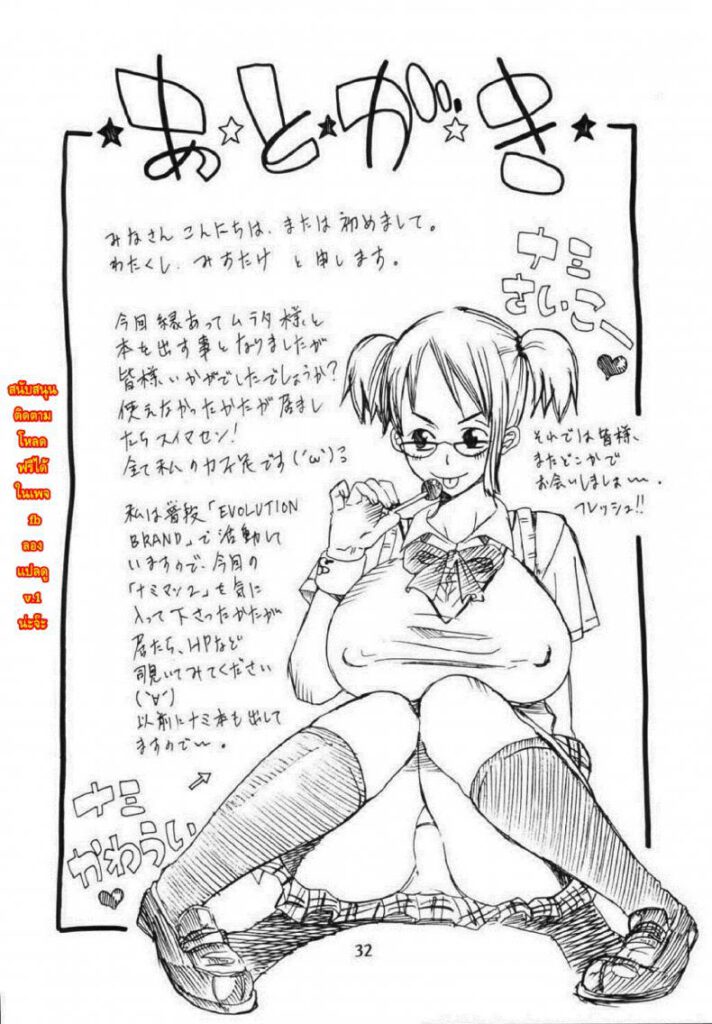 あとがき
みなさんこんにちは、または初めまして。
わたくし、みすたけ と申します。
ナミ
さいこー
今回縁あってムラタ様と
本を出す事となりましたが
皆様いかがでしたでしょうか?
使えなかったかたが居まし
たらスイマセン!
全て私の力不足です('ω')
私は普段「EVOLUTION
BRAND」で活動して
いますので、今回の
「ナミマン2」を気に
入って下さったかたが
居たら、HPなど
覗いてみてください
('∀')
以前にナミ本も出して
ますので〜。
それでは皆様、
またどこかで
お会いしましょ〜。
フレッシュ!!
ナミ
かわうい
32
สนับสนุน
ติดตาม
โหลด
ฟรีได้
ในเพจ
fb
ลอง
แปลดู
v.1
น่ะจ๊ะ